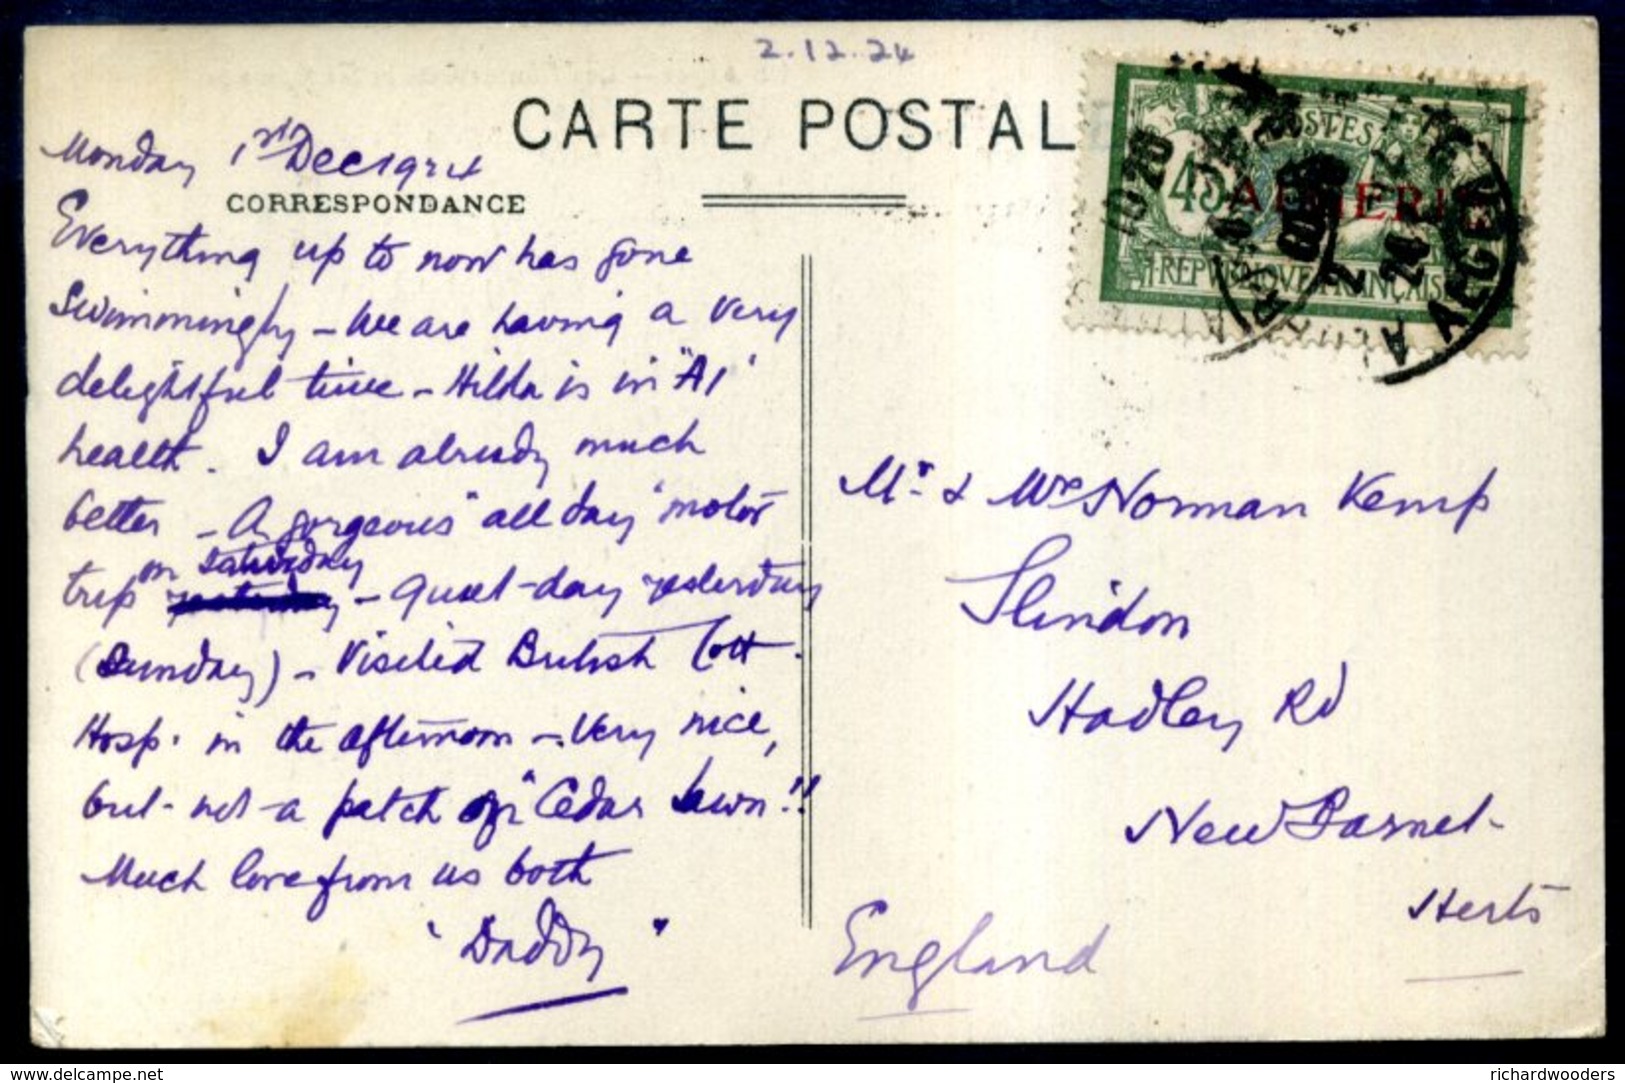 2.12.24
CARTE POSTALE
Monday 1st Dec 1924
CORRESPONDANCE
Everything up to now has gone
swimmingly – We are having a very
delightful time – Hilda is in "A1"
health. I am already much
better – A gorgeous "all day" motor
trip on Saturday – quiet-day yesterday
(Sunday) – Visited British Cott.
Hosp. in the afternoon – Very nice,
but not a patch on "Cedar Lawn"!!
Much love from us both
"Daddy"
Mr. & Mrs Norman Kemp
Slindon
Hadley Rd
New Barnet
Herts
England
POSTES
45
ALGÉRIE
REPUBLIQUE FRANÇAISE
ALGER
delcampe.net
richardwooders